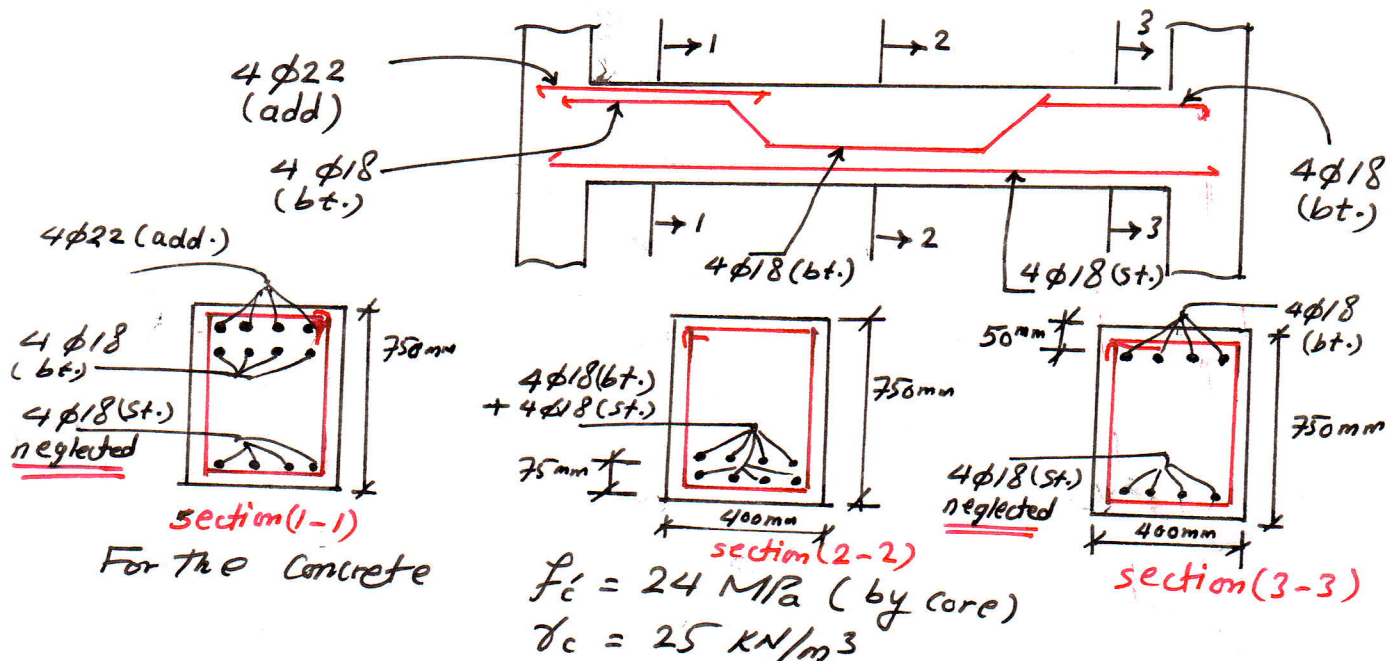 1
2
3
4 φ22
(add)
4 φ18
(bt.)
4φ18
(bt.)
1
2
3
4φ18(bt.)
4φ18(st.)
4φ22(add.)
4 φ18
(bt.)
4φ18(st.)
neglected
750mm
section(1-1)
4φ18(bt.)
+ 4φ18(st.)
75mm
750mm
400mm
section(2-2)
50mm
4φ18
(bt.)
4φ18(st.)
neglected
750mm
400mm
section(3-3)
For the concrete
f'c = 24 MPa (by core)
γc = 25 KN/m3